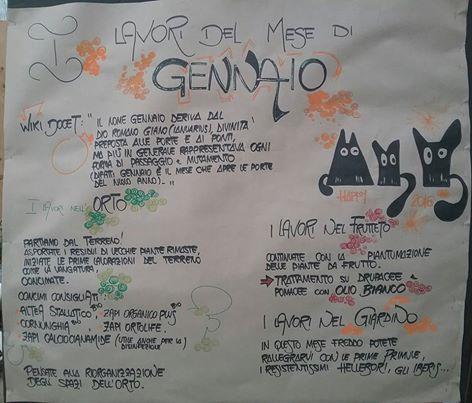 I LAVORI DEL MESE DI
GENNAIO
WIKI DOCET: "IL NOME GENNAIO DERIVA DAL
DIO ROMANO GIANO (IANUARIUS), DIVINITÀ
PREPOSTA ALLE PORTE E AI PONTI,
MA PIÙ IN GENERALE RAPPRESENTAVA OGNI
FORMA DI PASSAGGIO E MUTAMENTO
(DIFATTI GENNAIO È IL MESE CHE APRE LE PORTE
DEL NUOVO ANNO)..."
HAPPY 2016
I LAVORI NELL'ORTO
PARTIAMO DAL TERRENO!
ASPORTATE I RESIDUI DI VECCHIE PIANTE RIMASTE,
INIZIATE LE PRIME LAVORAZIONI DEL TERRENO
COME LA VANGATURA,
CONCIMATE.
CONCIMI CONSIGLIATI:
ALTEA STALLATICO, ZAPI ORGANICO PLUS
CORNUNGHIA, ZAPI ORTOLIFE,
ZAPI CALCIOCIANAMIDE (UTILE ANCHE PER LA
DISINFEZIONE)
PENSATE ALLA RIORGANIZZAZIONE
DEGLI SPAZI DELL'ORTO.
I LAVORI NEL FRUTTETO
CONTINUATE CON LA PIANTUMAZIONE
DELLE PIANTE DA FRUTTO.
TRATTAMENTO SU DRUPACEE E
POMACEE CON OLIO BIANCO
I LAVORI NEL GIARDINO
IN QUESTO MESE FREDDO POTETE
RALLEGRARVI CON LE PRIME PRIMULE,
I RESISTENTISSIMI HELLEBORI, GLI IBERIS...